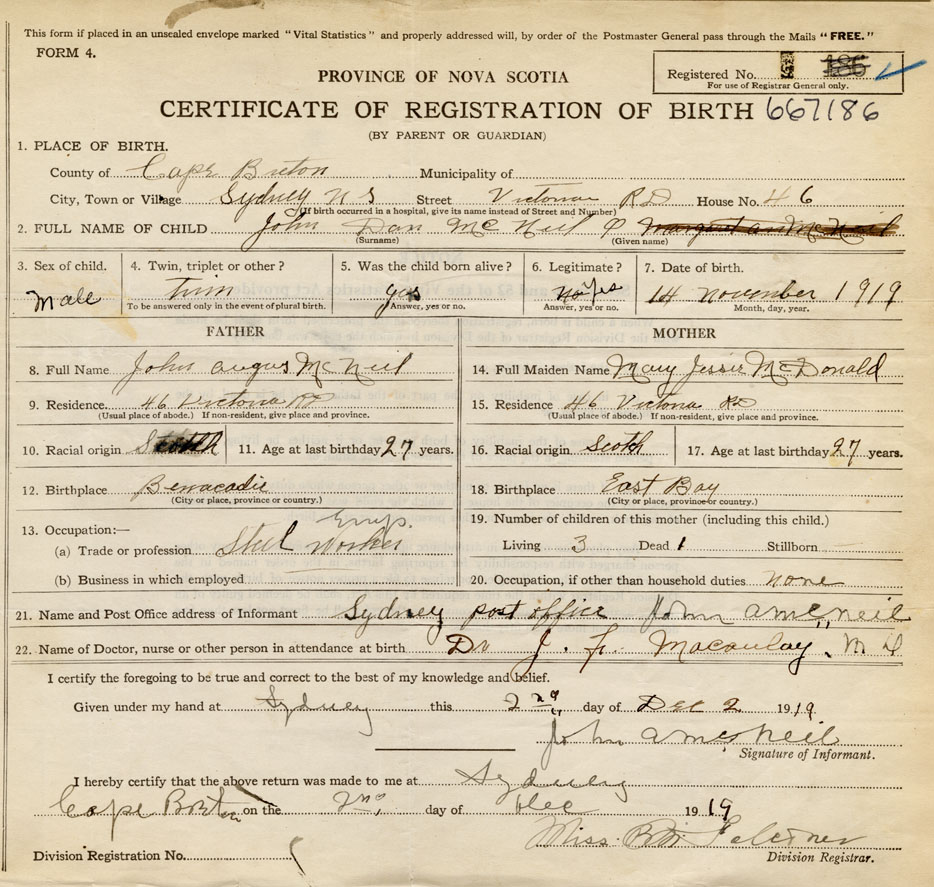 This form if placed in an unsealed envelope marked "Vital Statistics" and properly addressed will, by order of the Postmaster General pass through the Mails "FREE."
FORM 4.
PROVINCE OF NOVA SCOTIA
Registered No. 186
For use of Registrar General only.
CERTIFICATE OF REGISTRATION OF BIRTH 667186
(BY PARENT OR GUARDIAN)
1. PLACE OF BIRTH.
County of Cape Breton Municipality of
City, Town or Village Sydney N S Street Victoria RD House No. 46
(If birth occurred in a hospital, give its name instead of Street and Number)
2. FULL NAME OF CHILD John Dan Mc Neil Margaret an McNeil
(Surname) (Given name)
3. Sex of child. 4. Twin, triplet or other? 5. Was the child born alive? 6. Legitimate? 7. Date of birth.
Male twin yes no yes 14 november 1919
To be answered only in the event of plural birth. Answer, yes or no. Answer, yes or no. Month, day, year.
FATHER MOTHER
8. Full Name John angus McNeil 14. Full Maiden Name Mary Jessie McDonald
9. Residence. 46 Victoria RD 15. Residence 46 Victoria RD
(Usual place of abode.) If non-resident, give place and province. (Usual place of abode.) If non-resident, give place and province.
10. Racial origin Scotch 11. Age at last birthday 27 years. 16. Racial origin Scotch 17. Age at last birthday 27 years.
12. Birthplace Benacadie 18. Birthplace East Bay
(City or place, province or country.) (City or place, province or country.)
13. Occupation:— 19. Number of children of this mother (including this child.)
(a) Trade or profession Steel Worker Living 3 Dead 1 Stillborn
(b) Business in which employed 20. Occupation, if other than household duties none
21. Name and Post Office address of Informant Sydney post office John a mcneil
22. Name of Doctor, nurse or other person in attendance at birth Dr J. Macaulay. M D
I certify the foregoing to be true and correct to the best of my knowledge and belief.
Given under my hand at Sydney this 2nd day of Dec 2 1919
John a mcneil
Signature of Informant.
I hereby certify that the above return was made to me at Sydney
Cape Breton on the 2nd day of Dec 1919
Miss
Division Registration No. Division Registrar.